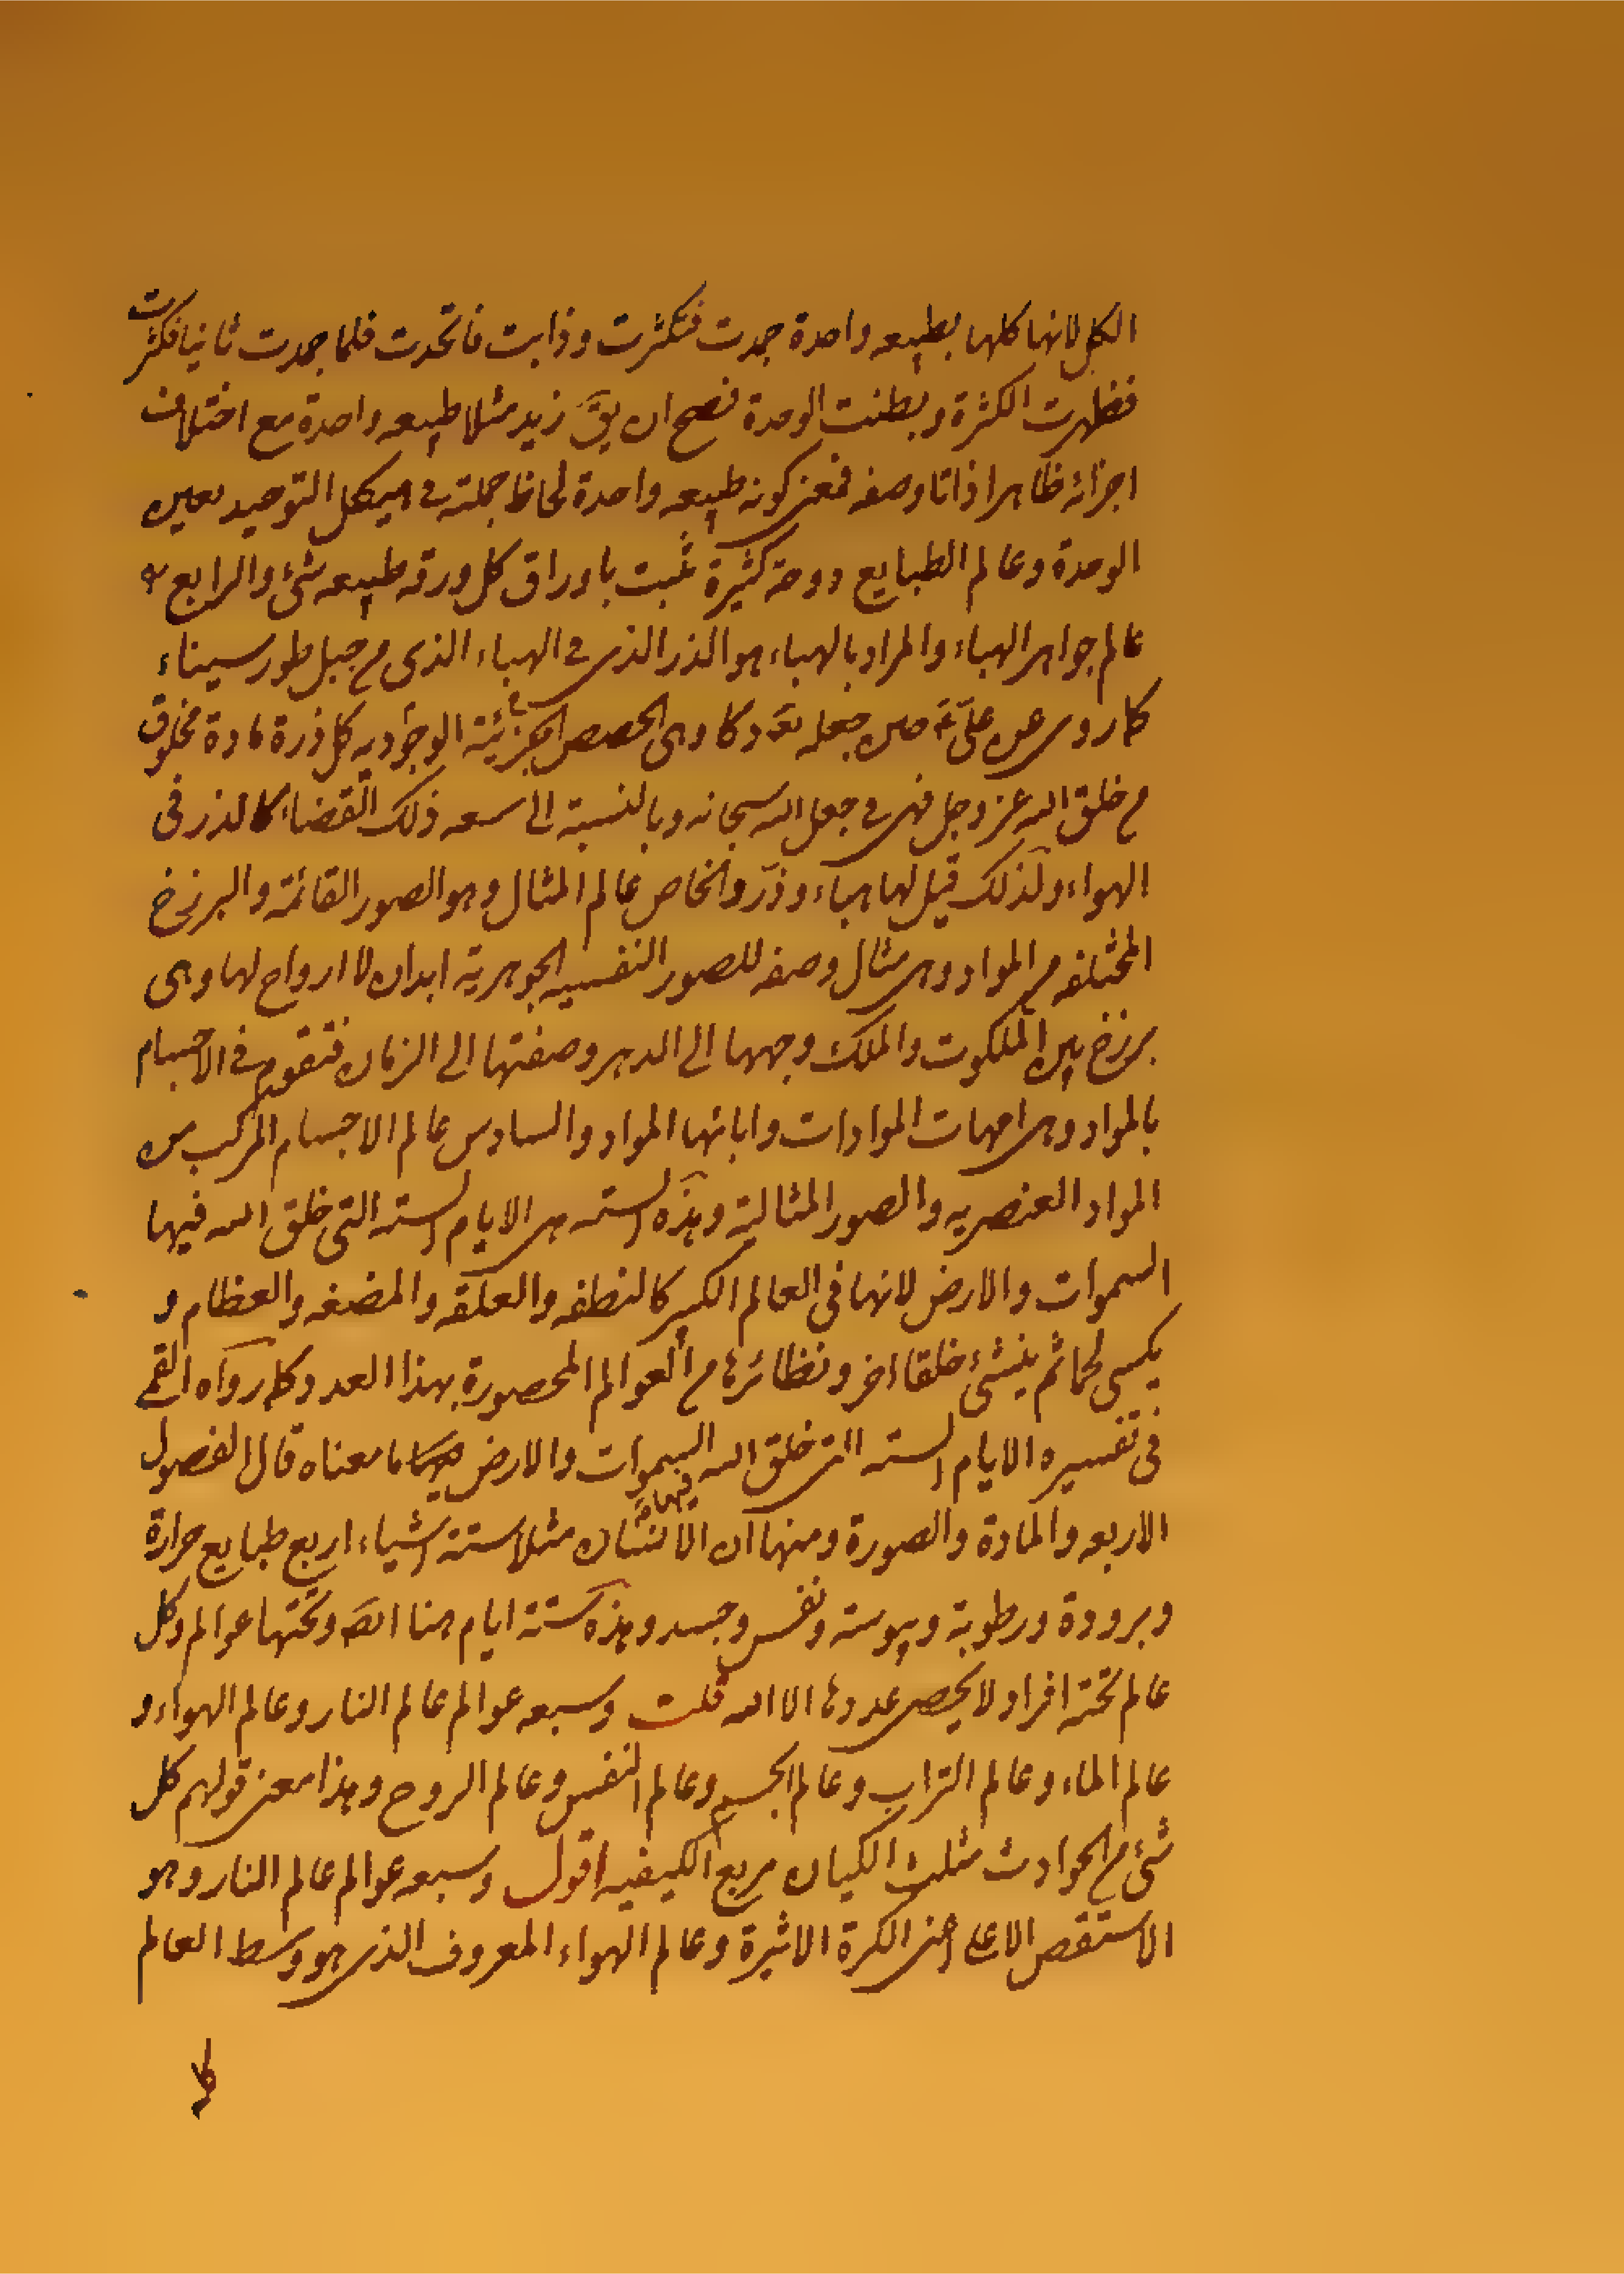 الكل لانها كلها بطبيعه واحدة جمدت فتكثرت وذابت فاتحدت فلما جمدت ثانيا فكثرت
فظهرت الكثرة وبطنت الوحدة فصح ان يق زيد مثلا طبيعه واحدة مع اختلاف
اجزائه ظاهرا ذاتا وصفه فمعنى كونه طبيعه واحدة لحاظ جملته في هيكل التوحيد بعين
الوحدة وعالم الطبايع دوحة كثيرة نبت باوراق كل ورقه طبيعه شئ والرابع
عالم جواهر الهباء والمراد بالهباء هو الذر الذى في الهباء الذى م جبل طور سيناء
كما روى عن علي ع حين جعله تع دكا وهى الحصص الجزئية الوجوديه كل ذرة مادة مخلوق
م خلق الله عز وجل فهى في جعل الله سبحانه وبالنسبة الى سعه ذلك القضاء كالذر فى
الهواء ولذلك قيل لها هباء وذر والخامس عالم المثال وهو الصور القائمة والبرزخ
المختلفه م المواد وهى مثال وصفه للصور النفسيه الجوهرية ابدان لا ارواح لها وهى
برزخ بين الملكوت والملك وجهها الى الدهر وصفتها الى الزمان فتقوم في الاجسام
بالمواد وهى امهات الموادات وابائها المواد والسادس عالم الاجسام المركب من
المواد العنصريه والصور المثالية وهذه الستة هى الايام الستة التى خلق الله فيها
السموات والارض لانها فى العالم الكبير كالنطفه والعلقه والمضغه والعظام و
يكسى لحما ثم ينشئ خلقا اخر ونظائرها م العوالم المحصورة بهذا العدد وكما رواه القمى
فى تفسيره الايام الستة التى خلق الله السموات والارض فيها ما معناه قال الفصول
الاربعه والمادة والصورة ومنها ان الانسان مثلا ستة اشياء اربع طبايع حرارة
وبرودة ورطوبة ويبوسة ونفس وجسد وهذه ستة ايام هنا ايض وتحتها عوالم وكل
عالم تحته افراد لا يحصى عددها الا الله قلت وسبعه عوالم عالم النار وعالم الهواء و
عالم الماء وعالم التراب وعالم الجسم وعالم النفس وعالم الروح وهذا معنى قولهم كل
شئ م الحوادث مثلث الكيان مربع الكيفيه اقول وسبعه عوالم عالم النار وهو
الاستقص الاعلى اعنى الكرة الاثيرة وعالم الهواء المعروف الذى هو وسط العالم